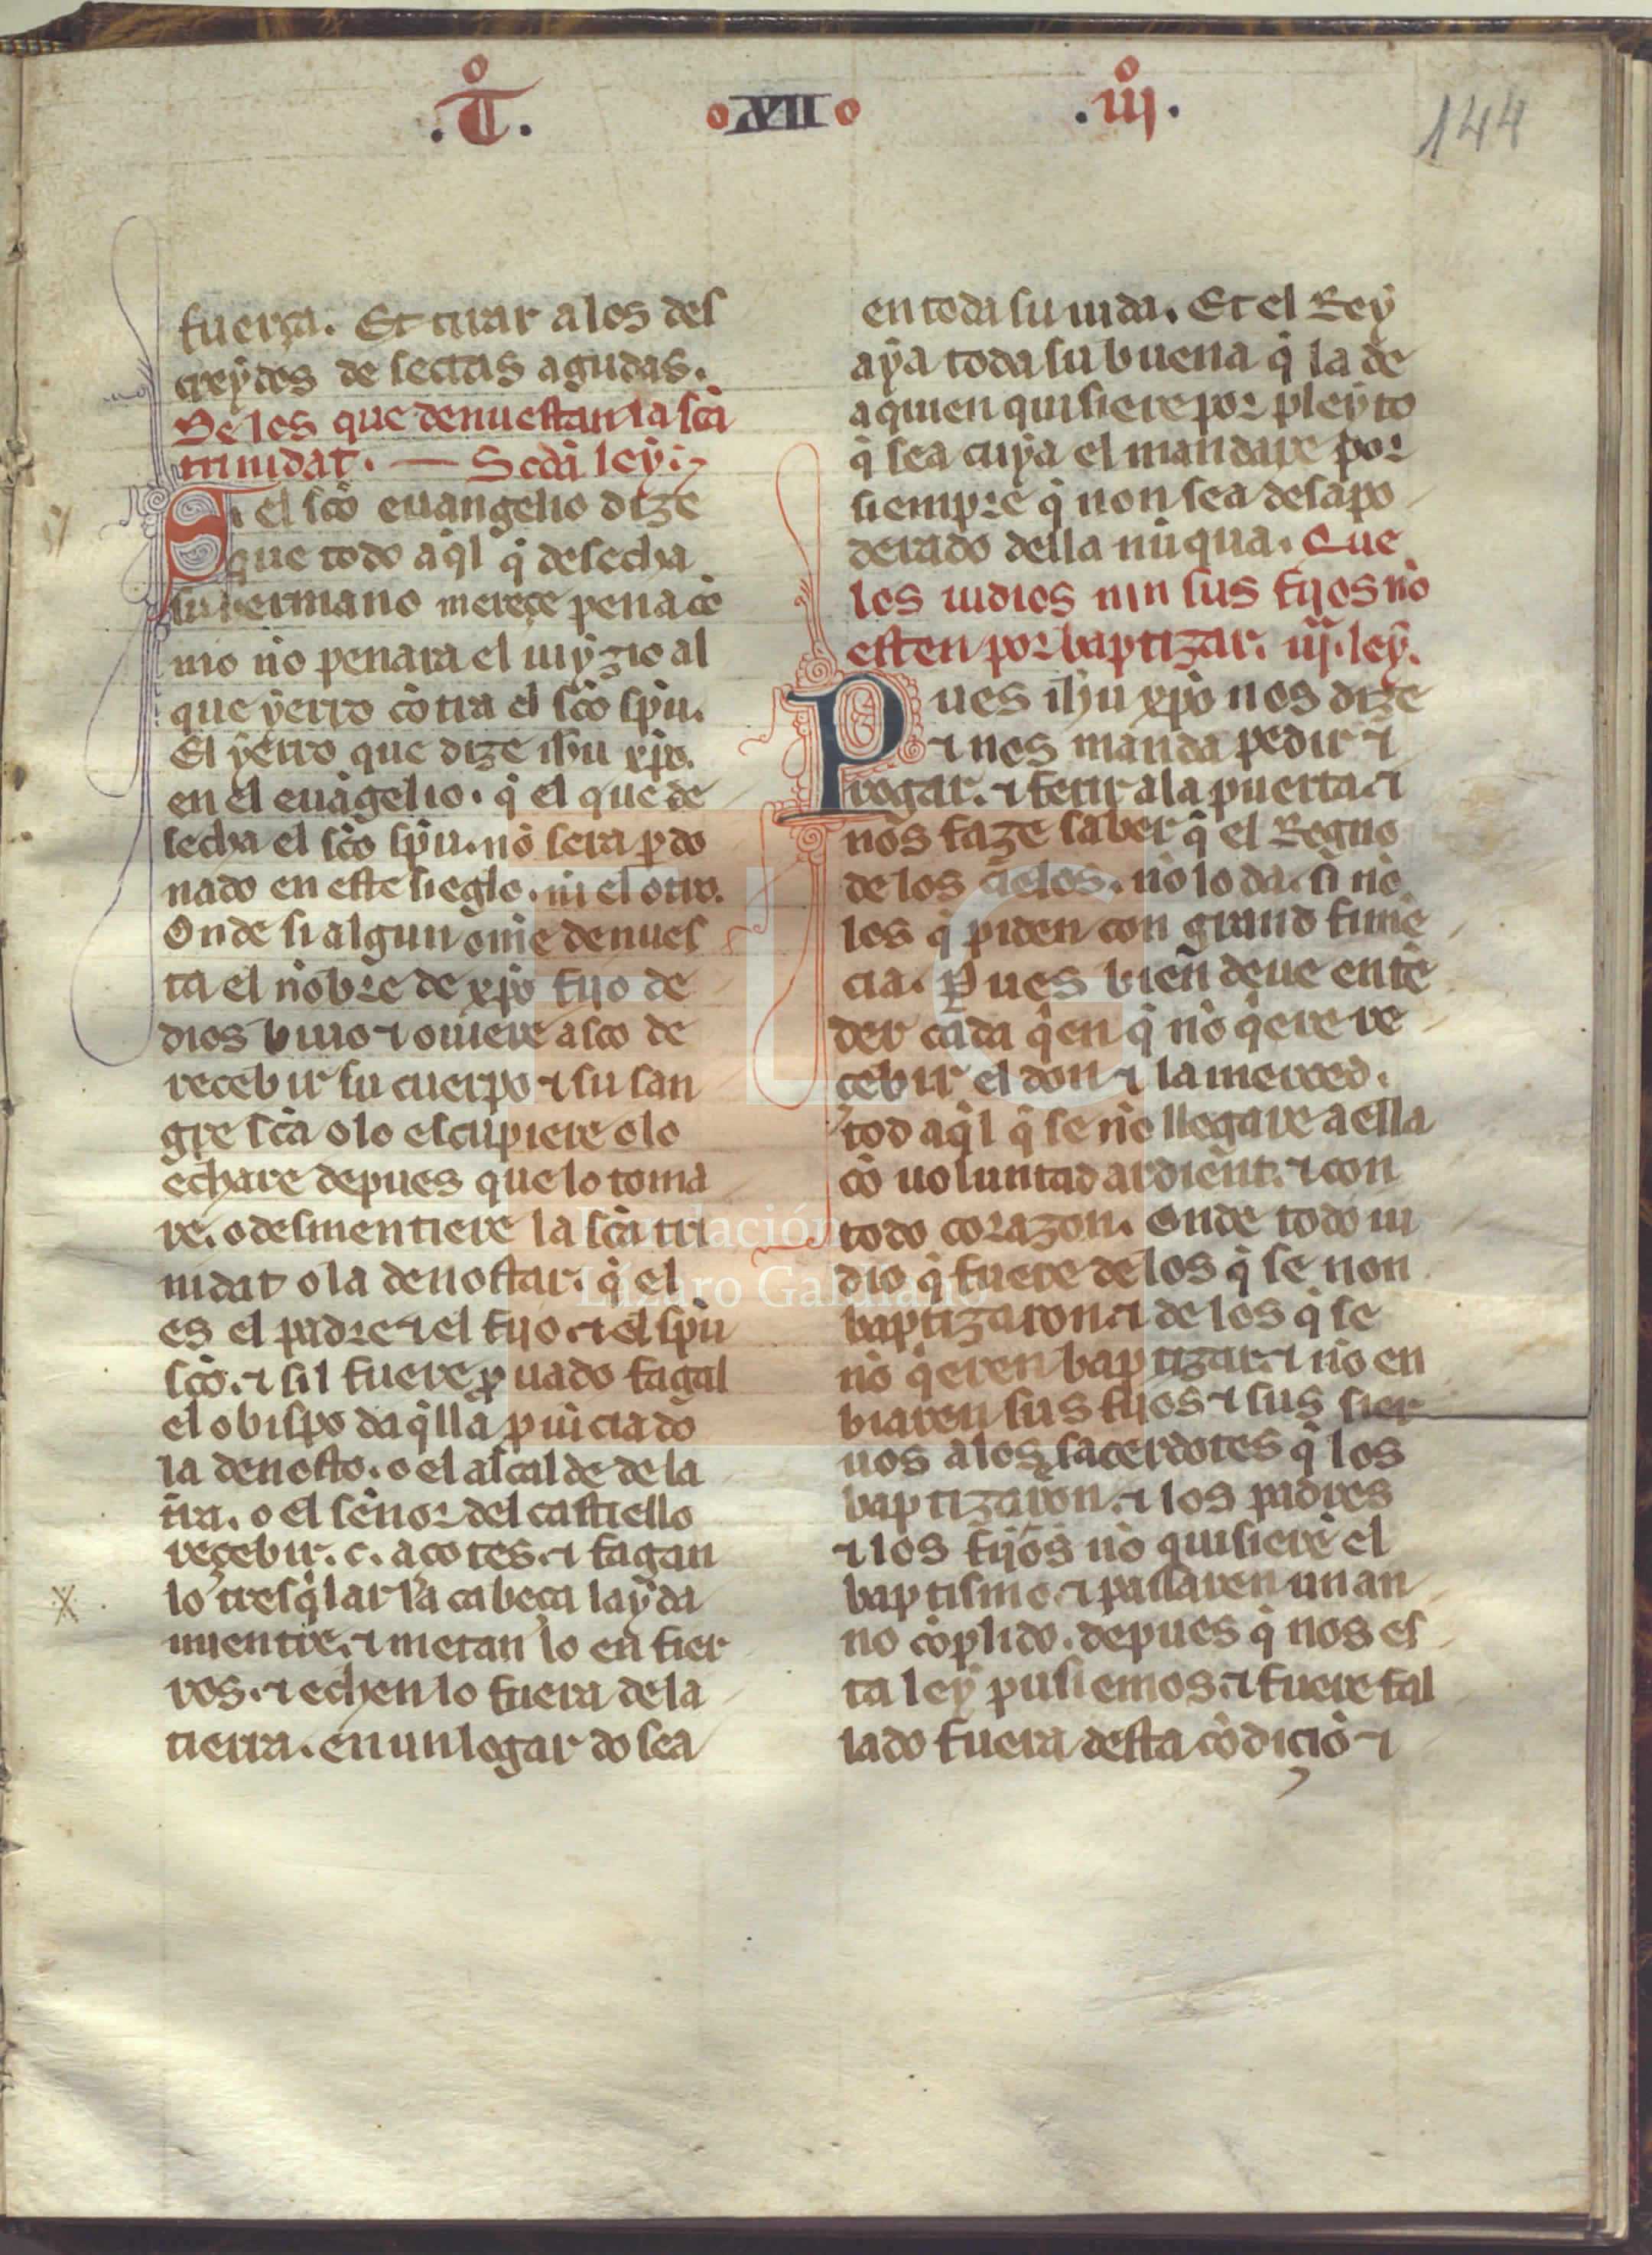 .T͞o. XII .iijº.
144
fuerça. Et tirar a los des
creydos de sectas agudas.
De los que denuestan la sc̃a
trinidat. — Scd̃a ley.
Si el sc̃o euangelio dize
que todo aq̃l q̃ desecha
su ermano mereçe pena cõ
mo nõ penara el iuyzio al
que yerro cõtra el sc̃o sp̃u.
El yerro que dize ih̃u xp̃o.
en el euãgelio. q̃ el que de
secha el sc̃o sp̃u. nõ sera ꝑdo
nado en este sieglo. nĩ el otro.
Onde si algun om̃e denues
ta el nõbre de xp̃o fijo de
dios biuo ⁊ ouiere asco de
recebir su cuerpo ⁊ su san
gre sc̃a o lo escupiere o lo
echare depues que lo toma
re. o desmentiere la sc̃a tri
nidat o la denostar. q̃ el
es el padre ⁊ el fijo. ⁊ el sp̃u
sc̃o. ⁊ sil fuere ꝓuado fagal
el obispo daq̃lla ꝓuĩcia dõ
la denosto. o el alcalde de la
tr̃a. o el señor del castiello
reçebir .c. açotes. ⁊ fagan
lo tresq̃lar la cabeça layda
mientre. ⁊ metan lo en fier
ros. ⁊ echen lo fuera de la
tierra. en un logar do sea
en toda su uida. Et el Rey
aya toda su buena q̃ la de
a quien quisiere por pleyto
q̃ sea cuya el mandare por
siempre q̃ non sea desapo
derado della nũqua. Que
los iudios nin sus fijos nõ
esten por baptizar. iij. ley.
Pues ih̃u xp̃o nos dize
⁊ nos manda pedir ⁊
rogar. ⁊ ferir a la puerta. ⁊
nos faze saber q̃ el Regno
de los cielos. nõ lo da. si nõ
los q̃ piden con grand fimẽ
cia. Pues bien deue entẽ
der cada q̃en q̃ nõ q̃ere re
cebir el don ⁊ la merced.
tod aq̃l q̃ se nõ llegare a ella
cõ uoluntad ardient. ⁊ con
todo corazon. Onde todo iu
dio q̃ fuere de los q̃ se non
baptizaron. ⁊ de los q̃ se
nõ q̃eren baptizar. ⁊ nõ en
biaren sus fijos ⁊ sus sier
uos a los sacerdotes q̃ los
baptizaron. ⁊ los padres
⁊ los fijos nõ quisierẽ el
baptismo. ⁊ passaren un an
no cõplido. depues q̃ nos es
ta ley pusiemos. ⁊ fuere fal
lado fuera desta cõdiçiõ ⁊
Fundación
Lázaro Galdiano
FLG